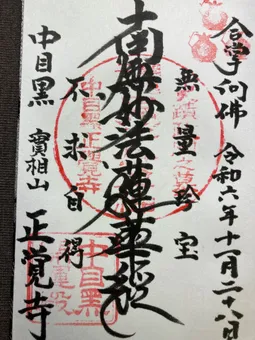 合掌向佛 令和六年十一月二十八日
無量珍宝
南無妙法蓮華経
不求自得
中目黒 實相山 正覚寺
中目黒正覚寺
中目黒